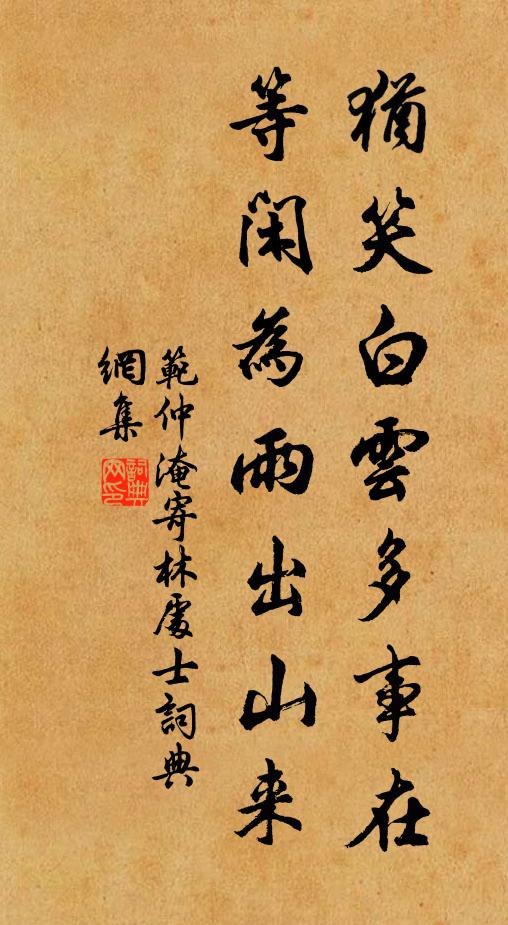 猶笑白雲多事在
等閑為雨出山来
範仲淹寄林處士詞典
網集
詞典
网印